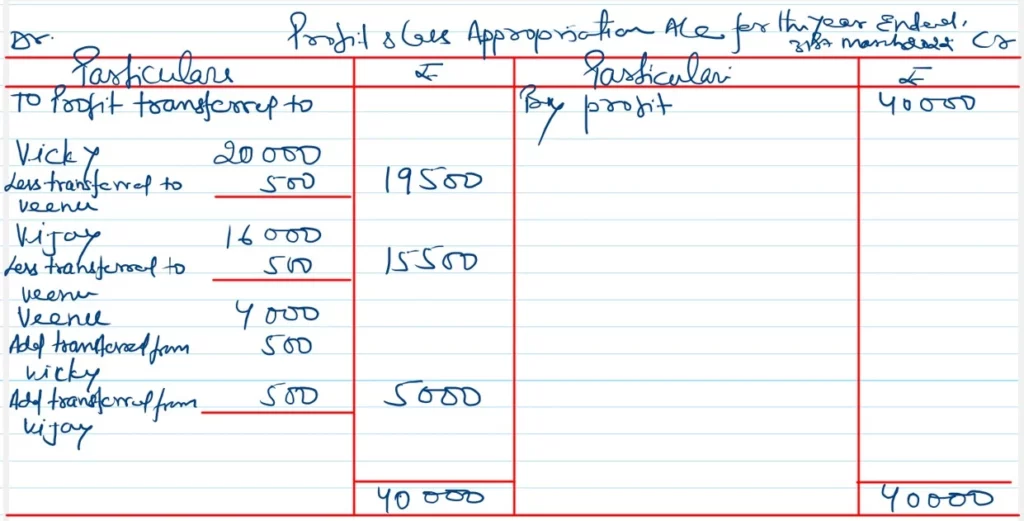 Dr. Profit & Loss Appropriation A/c for the year Ended,
31st March 2022 Cr
Particulars ₹ Particular ₹
To Profit transferred to By profit 40000
Vicky 20000
Less transferred to 500 19500
veenu
Vijay 16000
Less transferred to 500 15500
veenu
Veenu 4000
Add transferred from 500
vicky
Add transferred from 500 5000
vijay
40000 40000